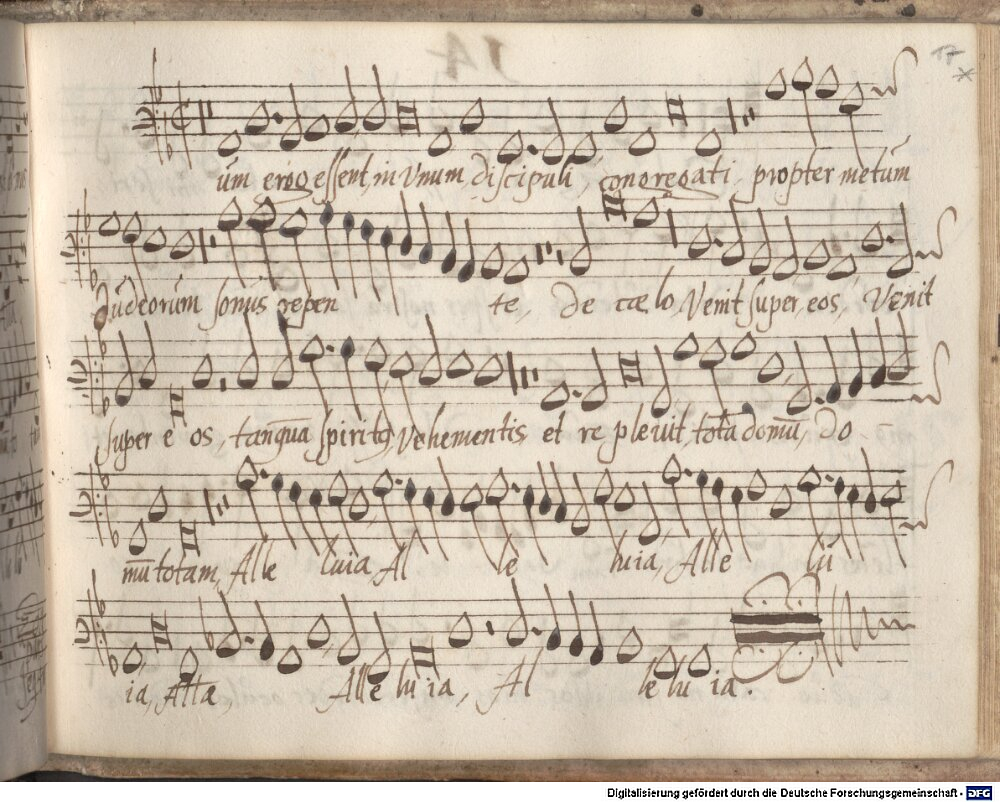 17
um ergo essent in Vnum discipuli, congregati propter metum
Judeorum sonus repen te, de cœlo, Venit super eos, Venit
super e os, tanquā spiritq Vehementis et re pleuit totā domū, do -
mū totam, Alle luia, Al le luia, Alle lu
ia, Alle, Alle lu ia, Al le lu ia.
Digitalisierung gefördert durch die Deutsche Forschungsgemeinschaft - DFG